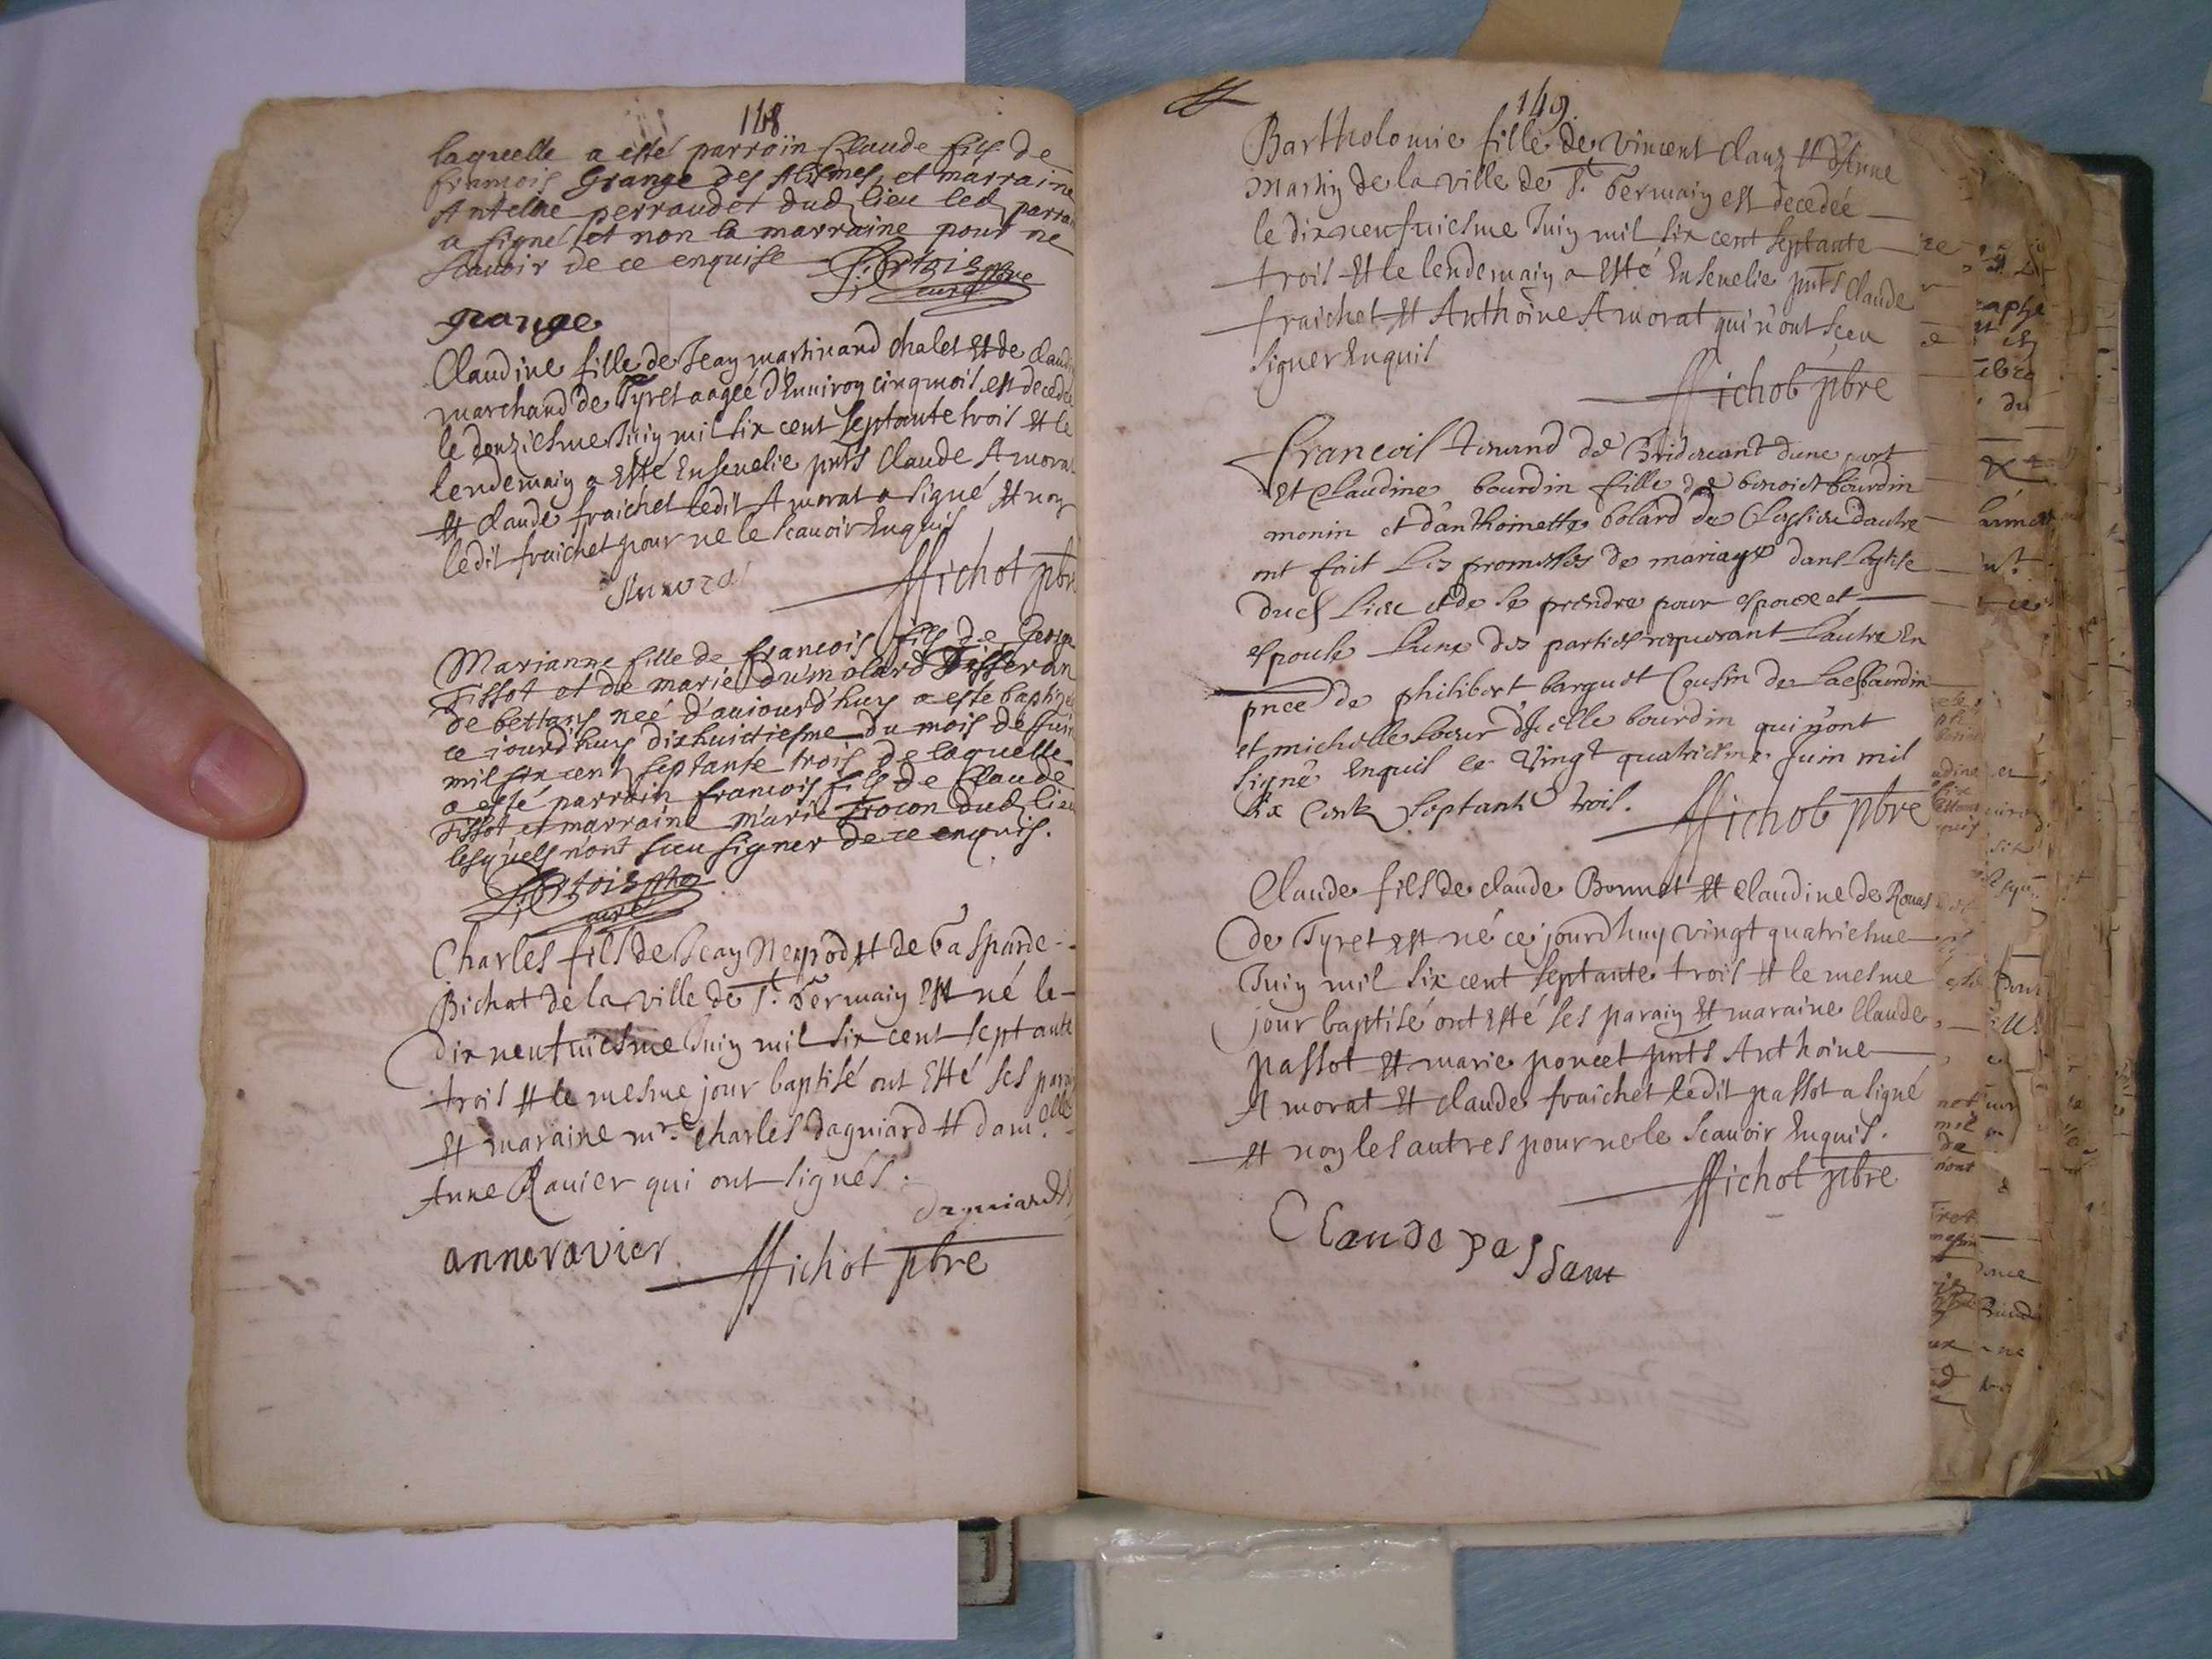 148
laquelle a esté parroin Claude fils de
francois Grange des Alismes, et marraine
Antelme perraudet dud lieu led parrain
a signé et non la marraine pour ne
scauoir de ce enquise
curé
grange
Claudine fille de Jean martinand chalet Et de Claudi
marchand de Tyret aagée d'Enuiron cinq mois est decedée
le douziesme Juin mil six cent septante trois Et le
lendemain a Esté Enseuelie pnts Claude Amorat
Et Claude fraichet ledit Amorat a signé Et non
ledit fraichet pour ne le scauoir Enquis
Amorat
Michot pbre
Marianne fille de francois fils de George
Tissot et de marie Dumolard
de bettans neé d'auiourd'huy a esté baptizeé
ce iourd'huy dixhuictiesme du mois de Juin
mil six cent septante trois de laquelle
a esté parrain francois fils de Claude
Tissot et marraine marie trocon dud lieu
lesquels n'ont sceu signer de ce enquis.
curé
Charles fils de Jean Neyrod Et de Gasparde
Bichat de la ville de St. Germain Est né le
dix neufuiesme Juin mil six cent septante
trois Et le mesme jour baptisé ont Esté ses parain
Et maraine mre. Charles dagniard Et dam.elle
Anne Rauier qui ont signés.
dagniard
anne ravier
Michot pbre
149.
Bartholomie fille de vincent Clauz Et d'Anne
Martin de la ville de St. Germain est decedée
le dix neufuiesme Juin mil six cent septante
trois Et le lendemain a Esté Enseuelie pnts Claude
fraichet Et Anthoine Amorat qui n'ont sceu
signer Enquis
Michot pbre
Francois tenand de Bridouant dune part
Et Claudine bourdin fille de benoict bourdin
monin et d'anthoinette bolard de d'autre
ont fait les promesses de mariage dans l'eglise
dud lieu et de se prendre pour espoux et
espouse l'une des parties requerant l'autre En
pnce de philibert barguet Cousin de lad bourdin
et michelle soeur d'Icelle bourdin qui n'ont
signé Enquis ce vingt quatriesme Juin mil
six Cent septante trois.
Michot pbre
Claude fils de Claude Bonnet Et Claudine de Rouas
de Tyret Est né ce jourdhuy vingt quatriesme
Juin mil six cent septante trois Et le mesme
jour baptisé ont Esté ses parain Et maraine Claude
passot Et marie poncet pnts Anthoine
Amorat Et Claude fraichet ledit passot a signé
Et non les autres pour ne le scauoir Enquis.
Michot pbre
Claude passaut